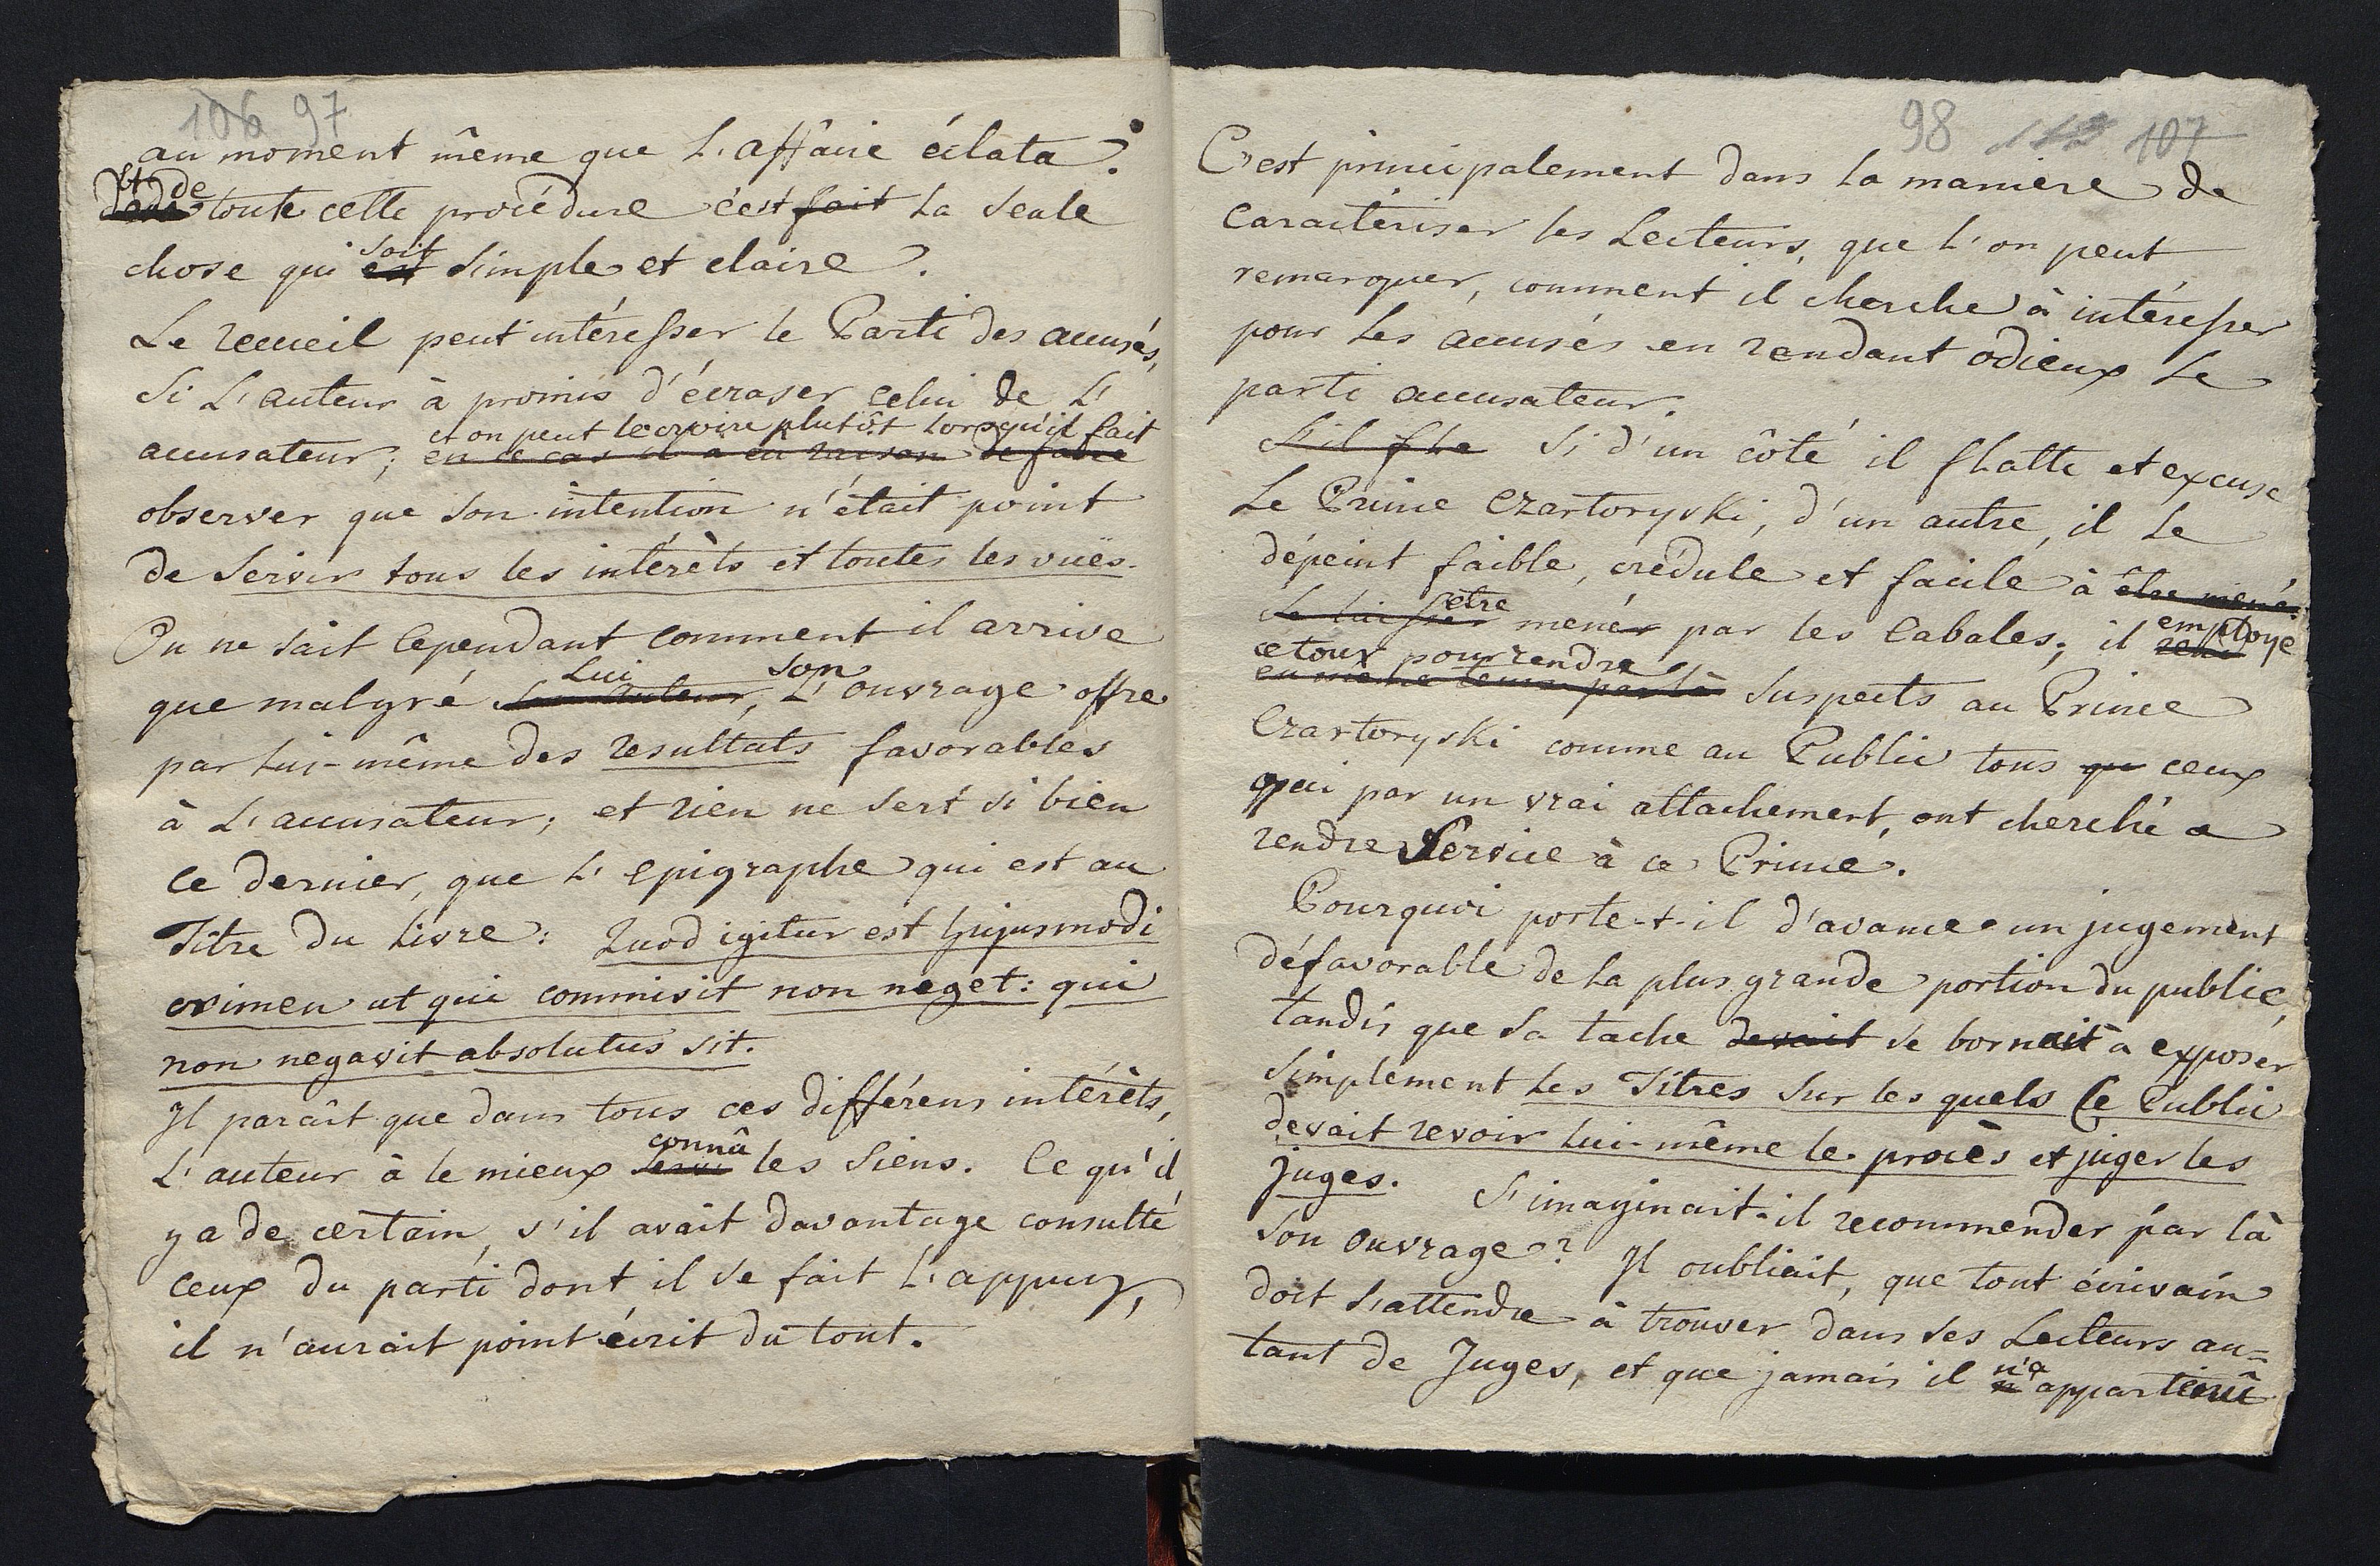 106 97
au moment même que L'affaire éclata?
et de
toute cette procédure c'est fait La seule
soit
chose qui est simple et claire.
Le recueil peut intéresser le Parti des accusés,
Si L'auteur à promis d'écraser celui de L'
et on peut le croire plutôt lorsqu'il fait
accusateur; en ce cas il a eu raison de faire
observer que son intention n'était point
de Servir tous les intérèts et toutes les vuës.
On ne sait Cependant comment il arrive
Lui son
que malgré Son Auteur, L'ouvrage offre
par Lui-même des resultats favorables
à L'accusateur; et rien ne sert si bien
ce dernier, que L'epigraphe qui est au
Titre du Livre: Quod igitur est hujusmodi
crimen ut qui commisit non neget: qui
non negavit absolutus sit.
Il parâit que dans tous ces différens intérèts,
connû
L'auteur à le mieux servi les siens. Ce qu'il
y a de certain, s'il avait davantage consulté
ceux du parti dont il se fait L'appuy,
il n'aurait point écrit du tout.
98 107
C'est principalement dans la maniere de
Caractériser les Lecteurs, que L'on peut
remarquer, comment il cherche à intéresser
pour Les accusés en rendant odieux Le
parti accusateur.
S'il fla Si d'un côté il flatte et excuse
Le Prince Czartoryski, d'un autre, il Le
dépeint faible, crédule et facile à être mené
être employe
Se laisser mener par les Cabales; il
ce tour pour rendre
en même tems par là Suspects au Prince
Czartoryski comme au Public tous qu ceux
qui par un vrai attachement, ont cherché a
rendre Service à ce Prince.
Pourquoi porte-t-il d'avance un jugement
défavorable de la plus grande portion du public,
tandis que sa tache devait se bornait à exposer
Simplement Les Titres Sur les quels le Public
devait revoir Lui-même le procès et juger les
juges. S'imaginait-il recommender par là
Son Ouvrage? Il oubliait, que tout écrivain
doit s'attendre à trouver dans ses Lecteurs au=
n'a
tant de Juges, et que jamais il n appartenû